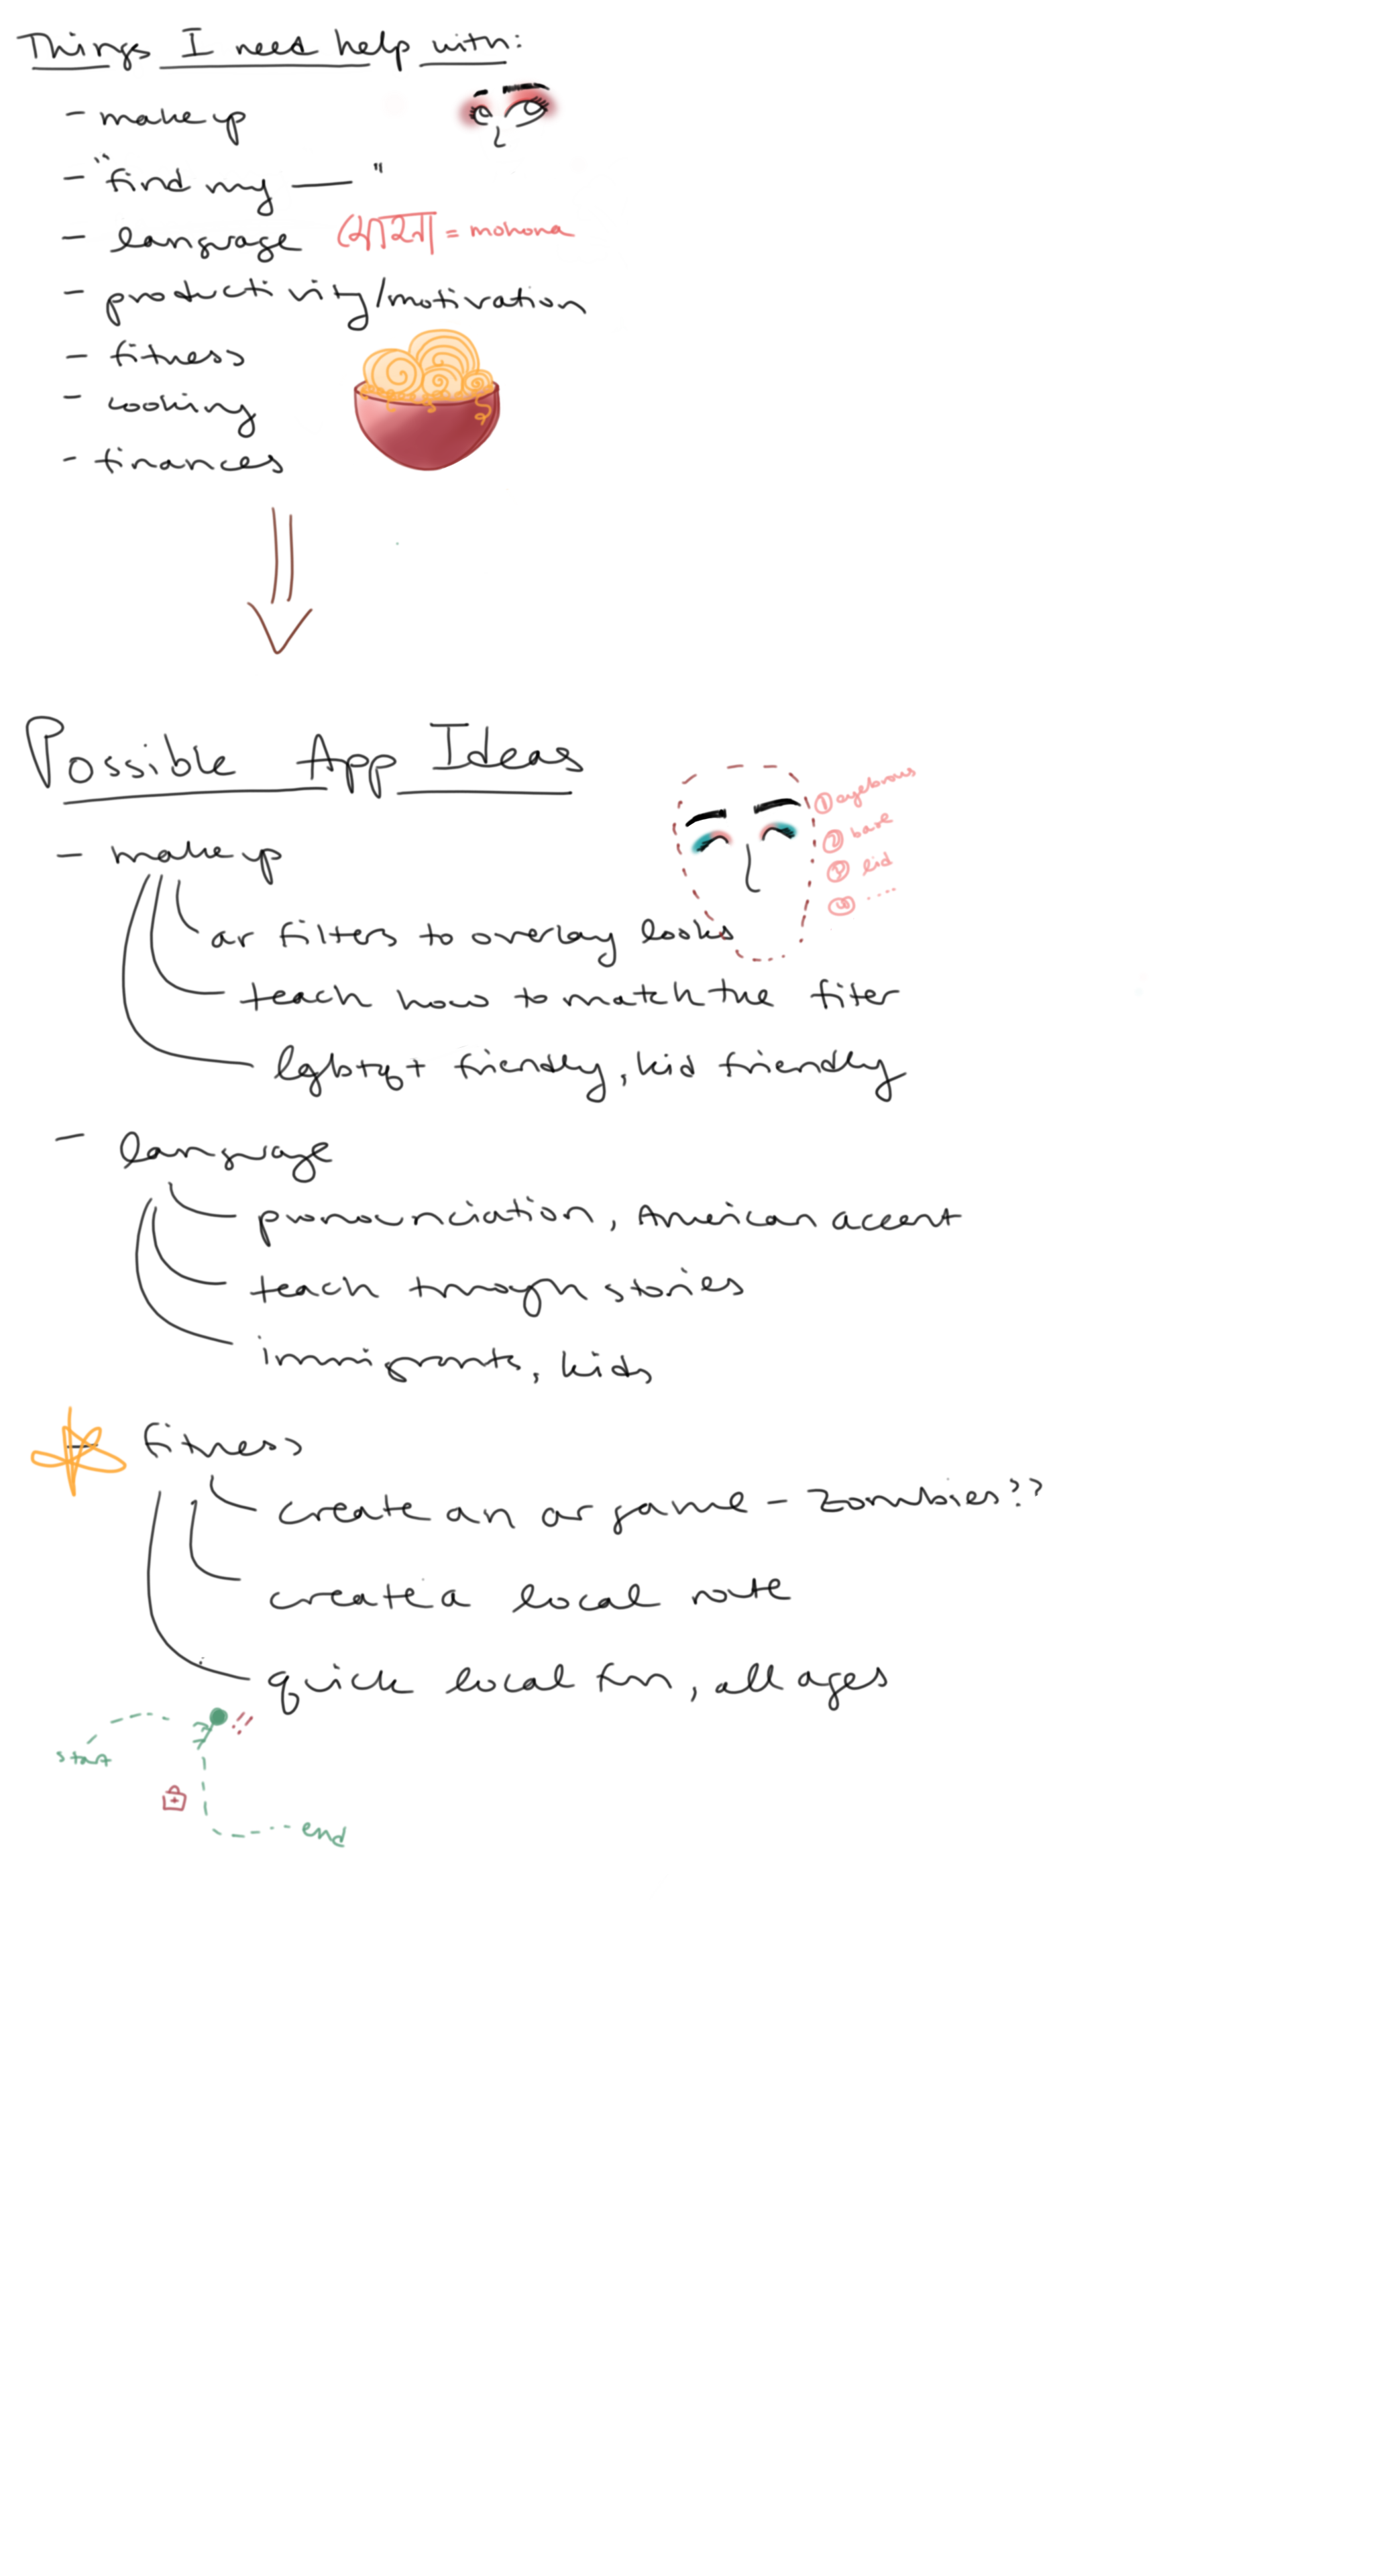 Things I need help with:
- makeup
- "find my — "
- language মোহনা = mohona
- productivity/motivation
- fitness
- cooking
- finances
Possible App Ideas
- makeup
① eyebrows
② base
③ lid
④ ....
ar filters to overlay looks
teach how to match the fiter
lgbtq+ friendly, kid friendly
- language
pronounciation, American accent
teach through stories
immigrants, kids
- fitness
create an ar game - zombies??
create a local route
quick local fun, all ages
!!
start
end